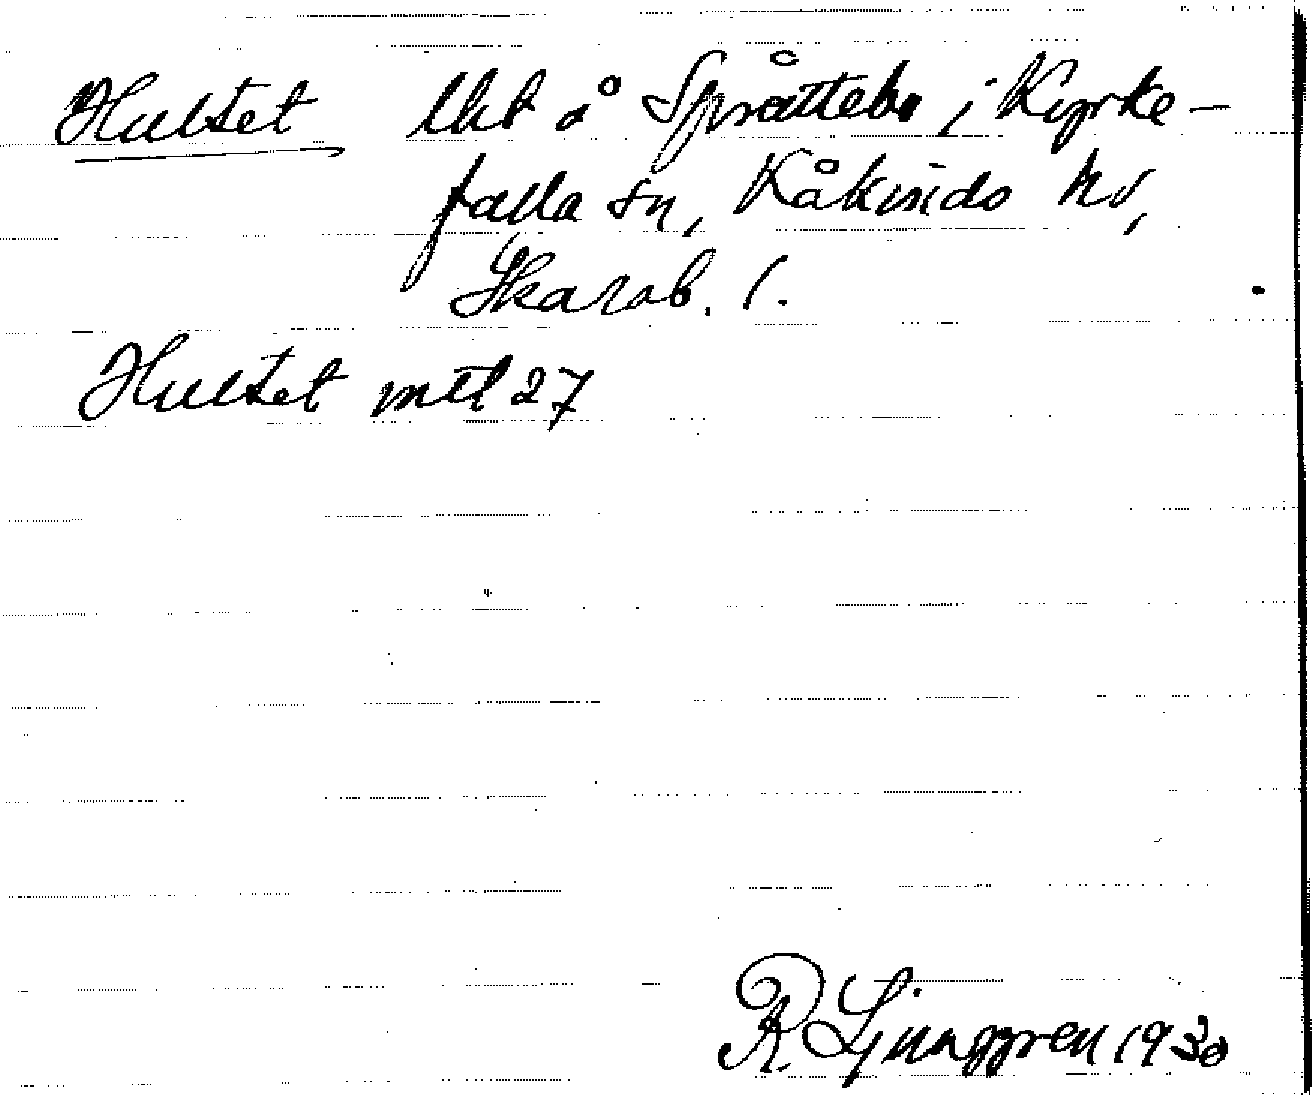 Hultet lht å Språttebo i Kyrke-
falla sn, Kåkinds hd,
Skarab. l.
Hultet mtl 27
R. Ljunggren 1930